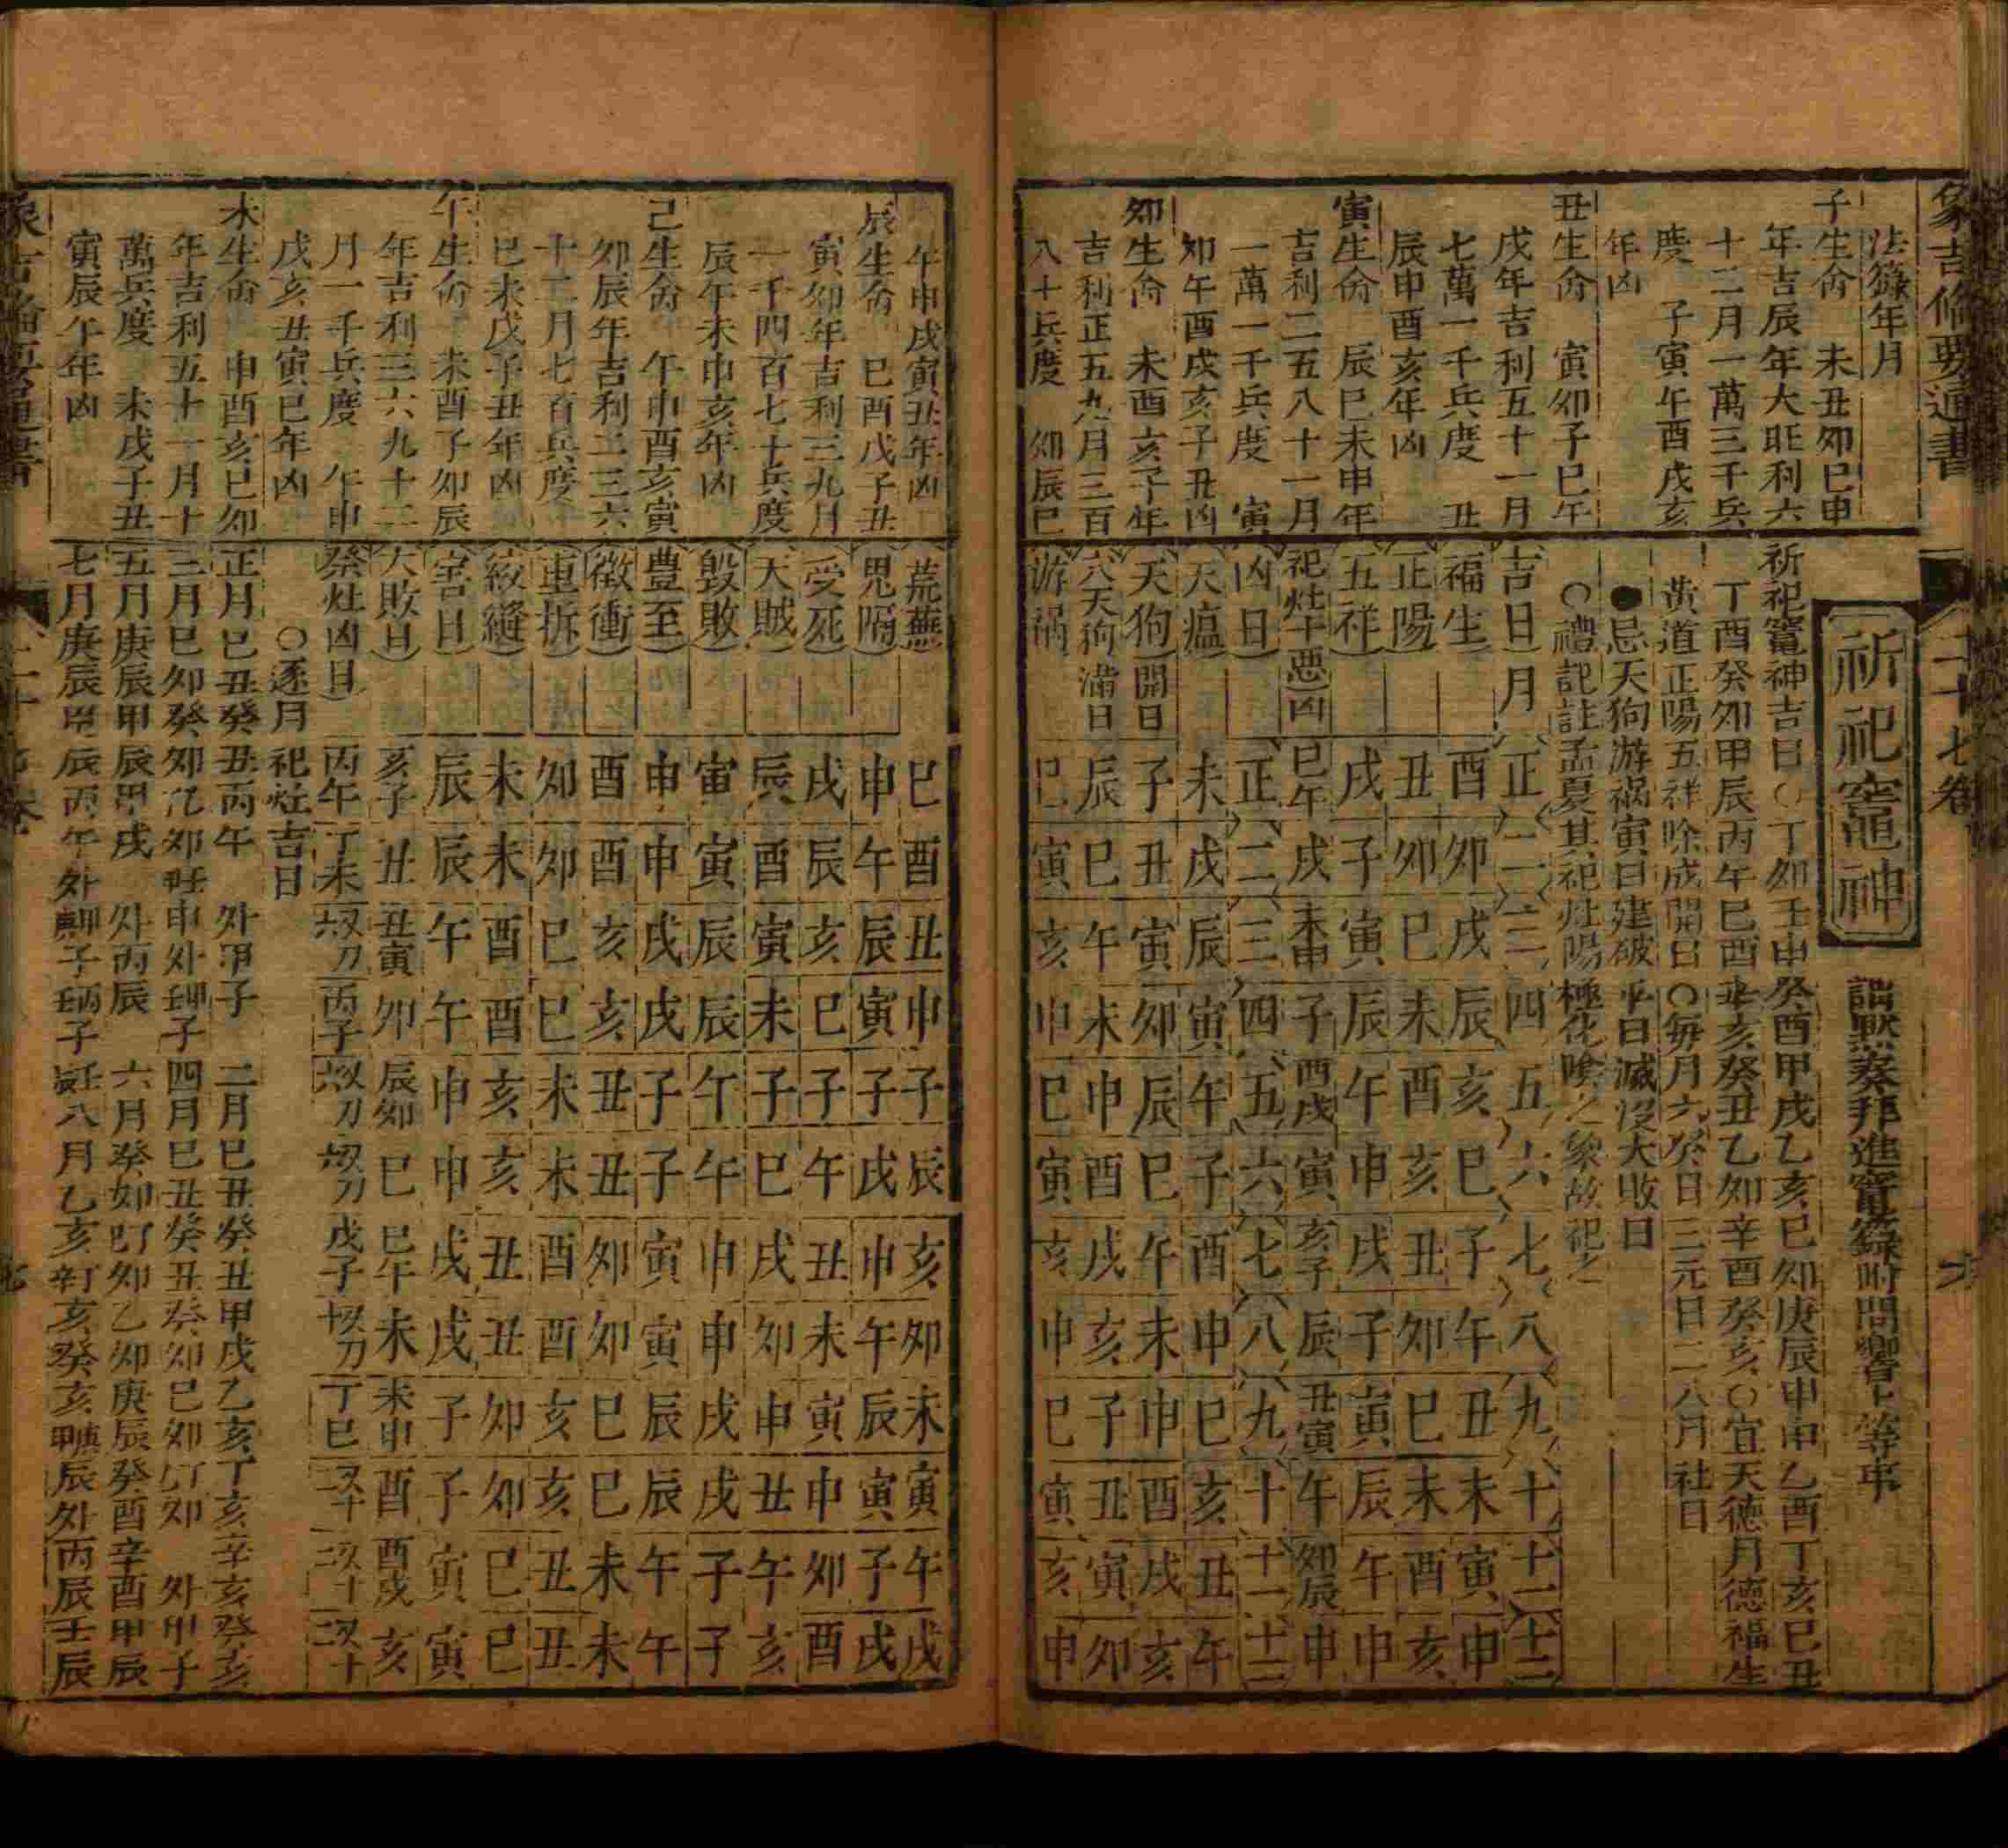 象吉脩要通書 二十七卷 六
法籙年月
子生命 未丑卯巳申
年吉辰年大旺利六
十二月一萬三千兵
度 子寅午酉戌亥
年凶
丑生命 寅卯子巳午
戌年吉利五十一月
七萬一千兵度 丑
辰申酉亥年凶
寅生命 辰巳未申年
吉利二五八十一月
一萬一千兵度 寅
卯午酉戌亥子丑凶
卯生命 未酉亥子年
吉利正五九月三百
八十兵度 卯辰巳
祈祀竈神 謂默奏拜進竈籙附問響卜等事
祈祀竈神吉日○丁卯壬申癸酉甲戌乙亥巳卯庚辰甲申乙酉丁亥巳丑
丁酉癸卯甲辰丙午巳酉辛亥癸丑乙卯辛酉癸亥○宜天德月德福生
黃道正陽五祥除成開日○每月六癸日三元日二八月社日
●忌天狗游禍寅日建破平日滅沒大敗日
○禮記註孟夏其祀灶陽極化喚之象故祀之
吉日 月 正 二 三 四 五 六 七 八 九 十 十一 十二
福生 酉 卯 戌 辰 亥 巳 子 午 丑 未 寅 申
正陽 丑 卯 巳 未 酉 亥 丑 卯 巳 未 酉 亥
五祥 戌 子 寅 辰 午 申 戌 子 寅 辰 午 申
祀灶十惡凶 巳午 戌 未申 子 酉戌 寅 亥子 辰 丑寅 午 卯辰 申
凶日 正 二 三 四 五 六 七 八 九 十 十一 十二
天瘟 未 戌 辰 寅 午 子 酉 申 巳 亥 丑 午
天狗 開日 子 丑 寅 卯 辰 巳 午 未 申 酉 戌 亥
六天狗 滿日 辰 巳 午 未 申 酉 戌 亥 子 丑 寅 卯
游禍 巳 寅 亥 申 巳 寅 亥 申 巳 寅 亥 申
午申戌寅丑年凶
辰生命 巳酉戊子丑
寅卯年吉利三九月
一千四百七十兵度
辰午未申亥年凶
己生命 午申酉亥寅
卯辰年吉利二三六
十二月七百兵度
巳未戊子丑年凶
午生命 未酉子卯辰
年吉利三六九十二
月一千兵度 午申
戊亥丑寅巳年凶
未生命 申酉亥巳卯
年吉利五十一月十
萬兵度 未戌子丑
寅辰午年凶
荒蕪 巳 酉 丑 申 子 辰 亥 卯 未 寅 午 戌
鬼隔 申 午 辰 寅 子 戌 申 午 辰 寅 子 戌
受死 戌 辰 亥 巳 子 午 丑 未 寅 申 卯 酉
天賊 辰 酉 寅 未 子 巳 戌 卯 申 丑 午 亥
毀敗 寅 寅 辰 辰 午 午 申 申 戌 戌 子 子
豊至 申 申 戌 戌 子 子 寅 寅 辰 辰 午 午
徵衝 酉 酉 亥 亥 丑 丑 卯 卯 巳 巳 未 未
重拆 卯 卯 巳 巳 未 未 酉 酉 亥 亥 丑 丑
絞縫 未 未 酉 酉 亥 亥 丑 丑 卯 卯 巳 巳
害日 辰 辰 午 午 申 申 戌 戌 子 子 寅 寅
大敗日 亥子 丑 丑寅 卯 辰卯 巳 巳午 未 未申 酉 酉戌 亥
祭灶凶日 丙午 丁未 丙子 戊子 丁巳
○逐月 祀灶吉日
正月 巳丑癸丑丙午 外甲子 二月巳丑癸丑甲戌乙亥丁亥辛亥癸亥
三月巳卯癸卯乙卯 四月巳丑癸丑癸卯巳卯丁卯 外甲子
五月庚辰甲辰甲戌 外丙辰 六月癸卯 乙卯庚辰癸酉辛酉甲辰
七月庚辰甲辰丙午外 八月乙亥 亥癸亥 辰外丙辰壬辰
象吉脩要通書